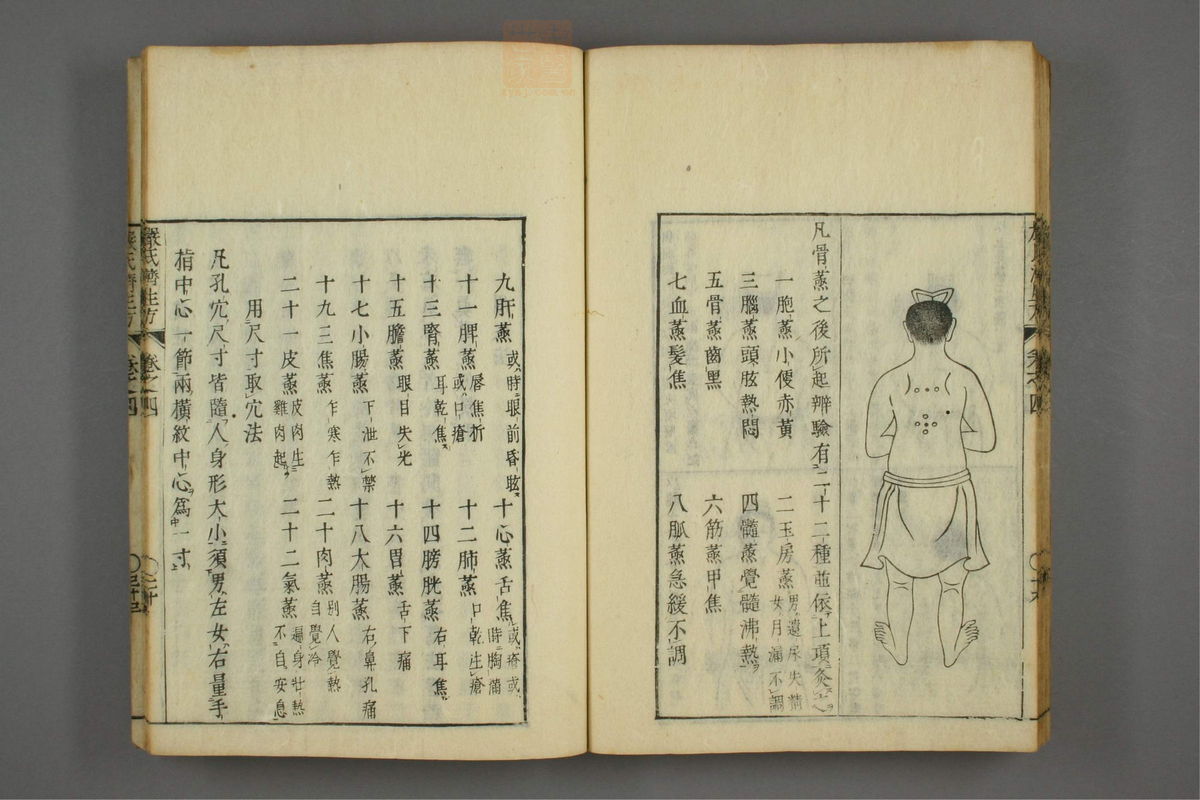 凡骨蒸之後所起辨驗有二十二種並依上項灸之
一胞蒸小便赤黃 二玉房蒸男遺尿失精女月漏不調
三腦蒸頭眩熱悶 四髓蒸覺髓沸熱
五骨蒸齒黑 六筋蒸甲焦
七血蒸髮焦 八脈蒸急緩不調
九肝蒸或時眼前昏眩 十心蒸舌焦或瘡或時胸滿
十一脾蒸唇焦折或口瘡 十二肺蒸口乾生瘡
十三腎蒸耳乾焦 十四膀胱蒸右耳焦
十五膽蒸眼目失光 十六胃蒸舌下痛
十七小腸蒸下泄不禁 十八大腸蒸右鼻孔痛
十九三焦蒸乍寒乍熱 二十肉蒸別人覺熱自覺冷
二十一皮蒸皮肉生雞肉起 二十二氣蒸遍身壯熱不自安息
用尺寸取穴法
凡孔穴尺寸皆隨人身形大小須男左女右量手
指中心一節兩橫紋中心爲一寸
嚴氏濟生方 卷之四